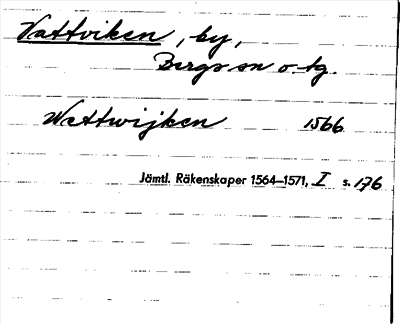 Vattviken, by,
Bergs sn o tg.
Wattwijken 1566
Jämtl. Räkenskaper 1564–1571, I s. 176